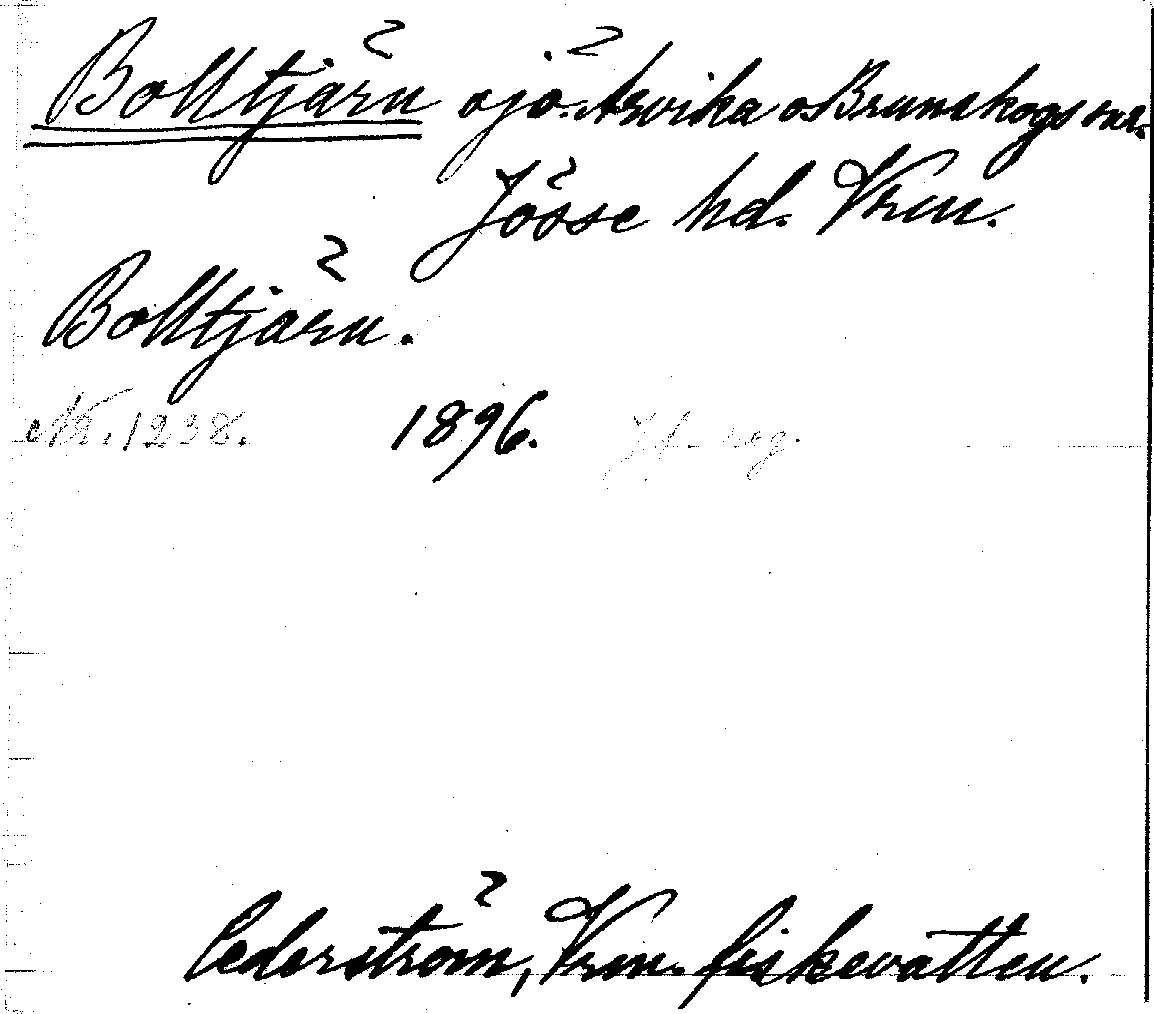 Bolltjärn sjö. Arvika o. Brunskogs snr.
Jösse hd. Vrm.
Bolltjärn.
Nr. 1238. 1896. Jf. reg.
Cederström, Vrm. fiskevatten.